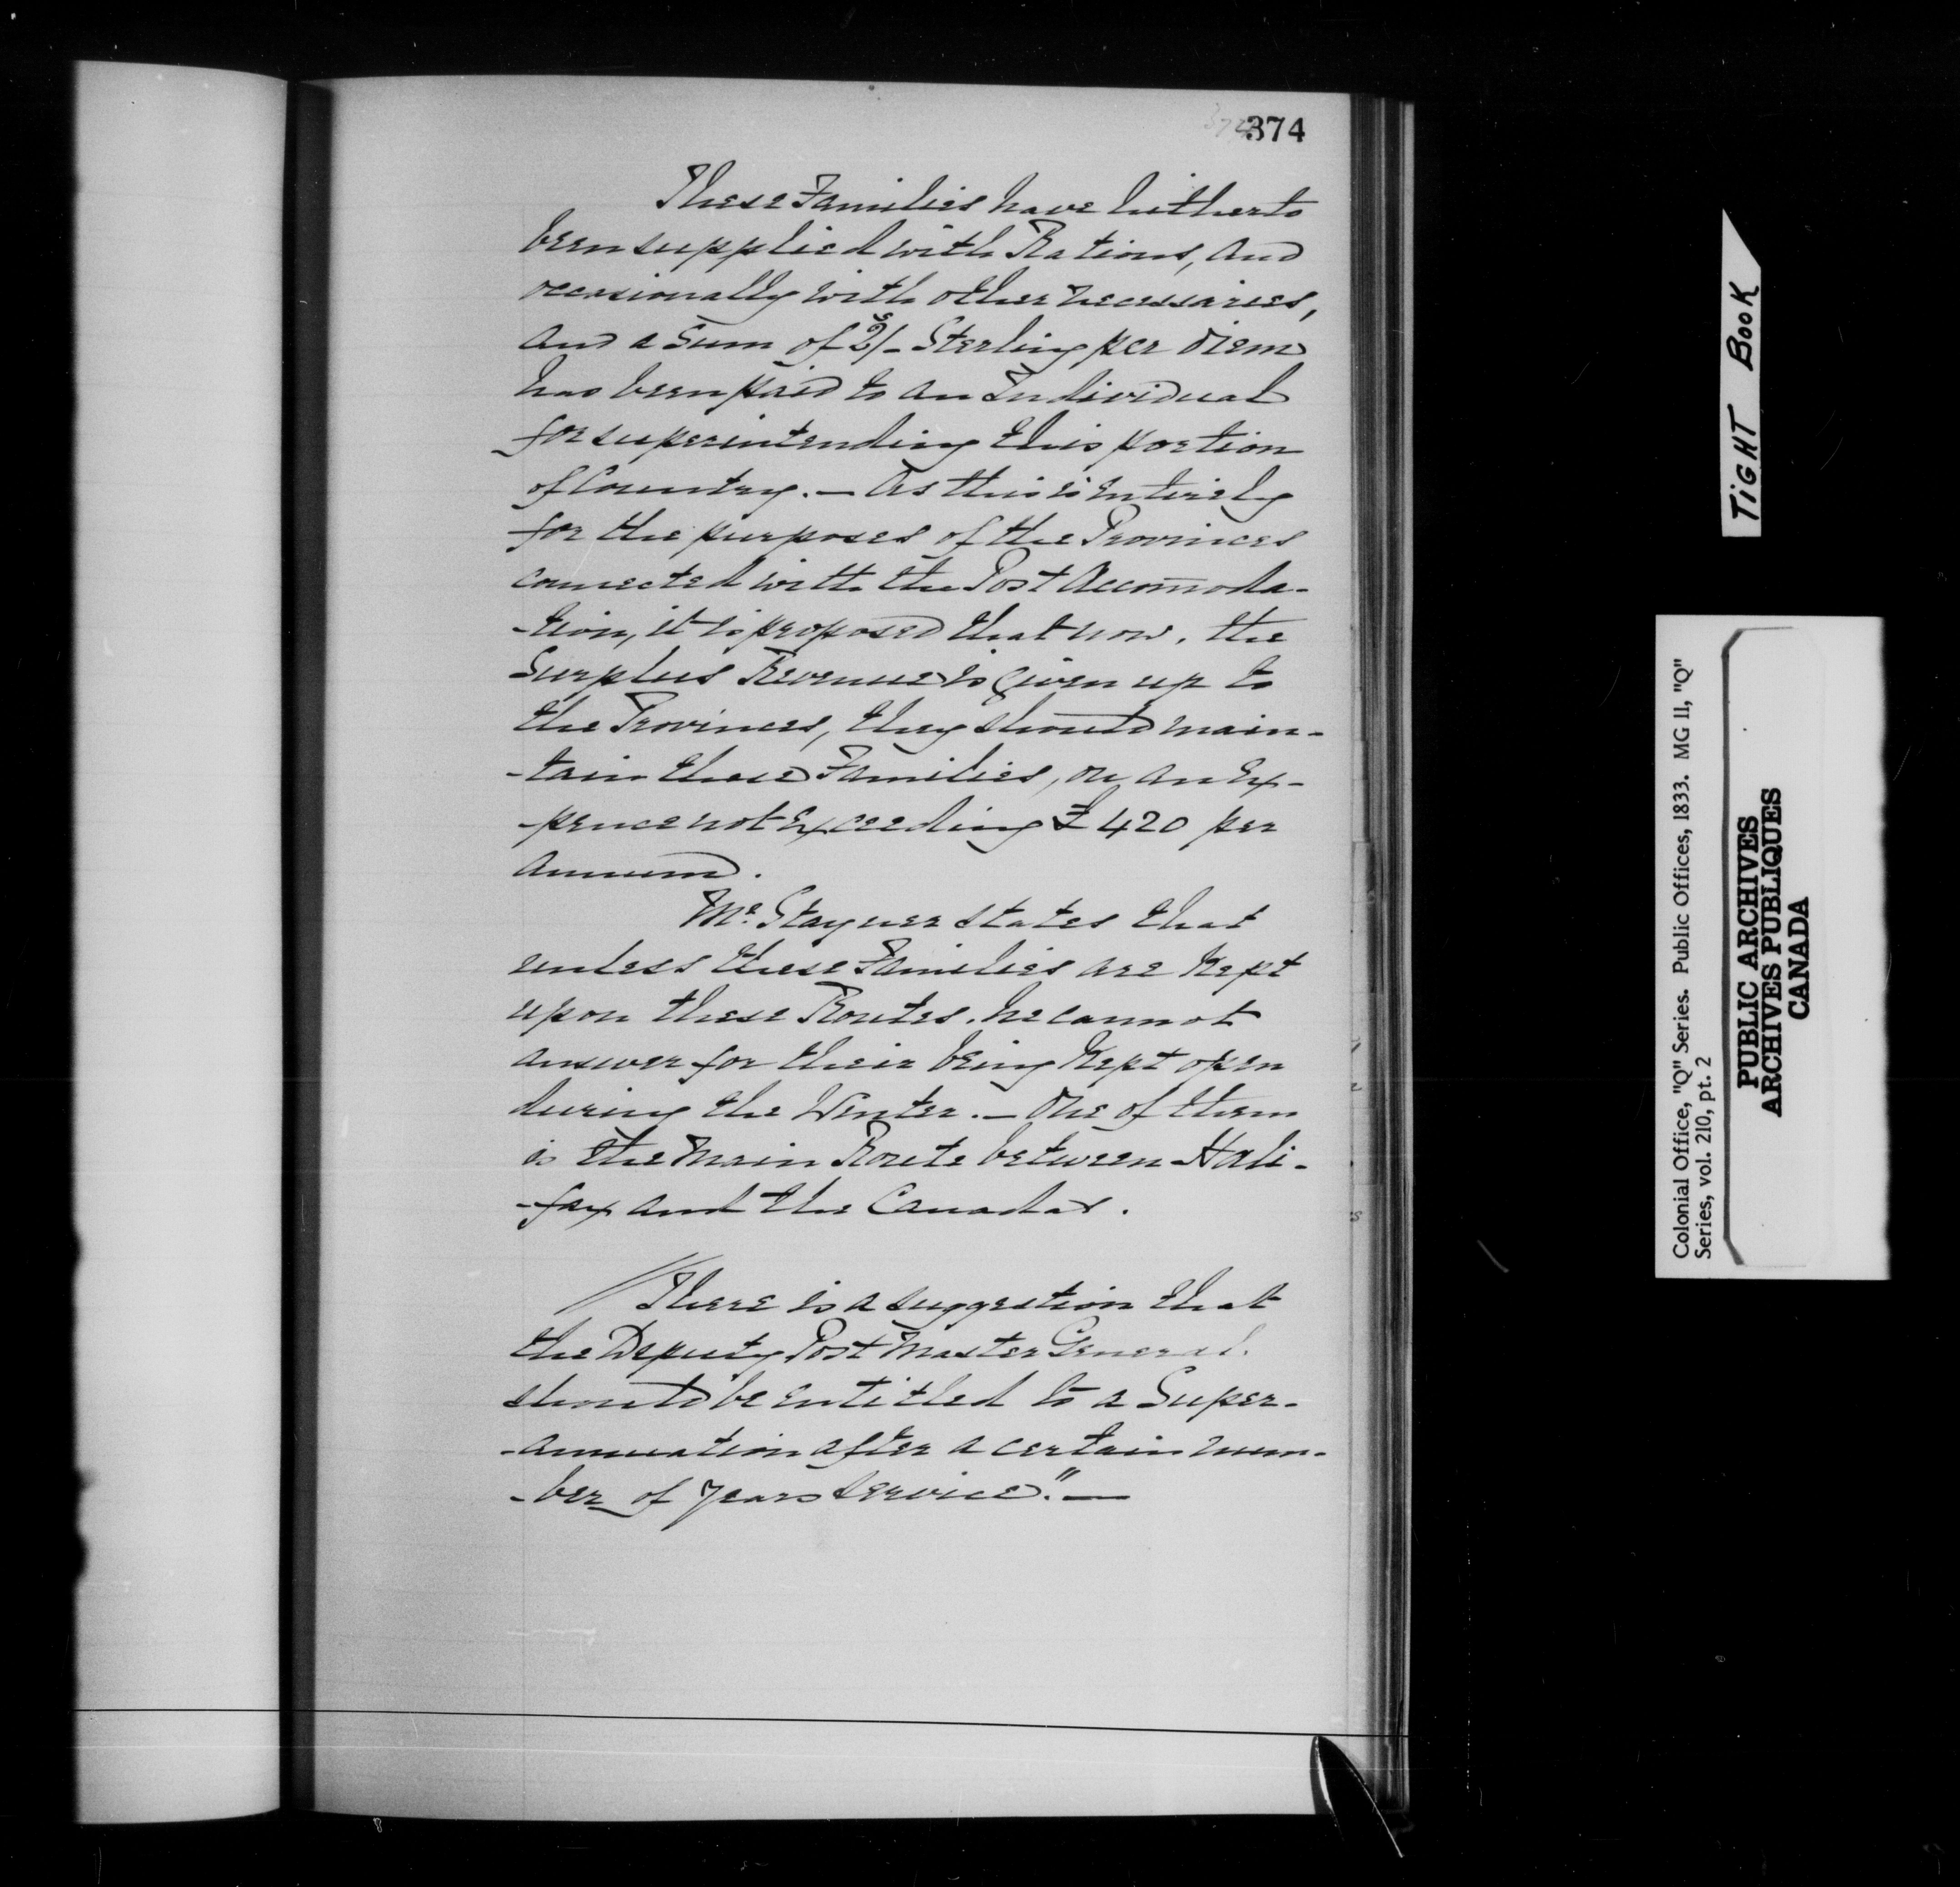 374
These Families have hitherto
been supplied with Rations, and
occasionally with other necessaries,
and a Sum of 2/- Sterling per diem
has been paid to an Individual
for superintending this portion
of Country. — As this is entirely
for the purposes of the Provinces
connected with the Post Accomoda-
-tion, it is proposed that now, the
Surplus Revenue is given up to
the Provinces, they should main-
-tain these Families, on an Ex-
-pence not Exceeding £420 per
annum.
Mr. Stayner states that
unless these Families are Kept
upon these Routes, he cannot
answer for their being Kept open
during the Winter. — One of them
is the Main Route between Hali-
-fax and the Canadas.
"There is a suggestion that
the Deputy Post Master General
should be entitled to a Super-
-annuation after a certain num-
-ber of Years Service." —
TIGHT BOOK
Colonial Office, "Q" Series. Public Offices, 1833. MG 11, "Q"
Series, vol. 210, pt. 2
PUBLIC ARCHIVES
ARCHIVES PUBLIQUES
CANADA